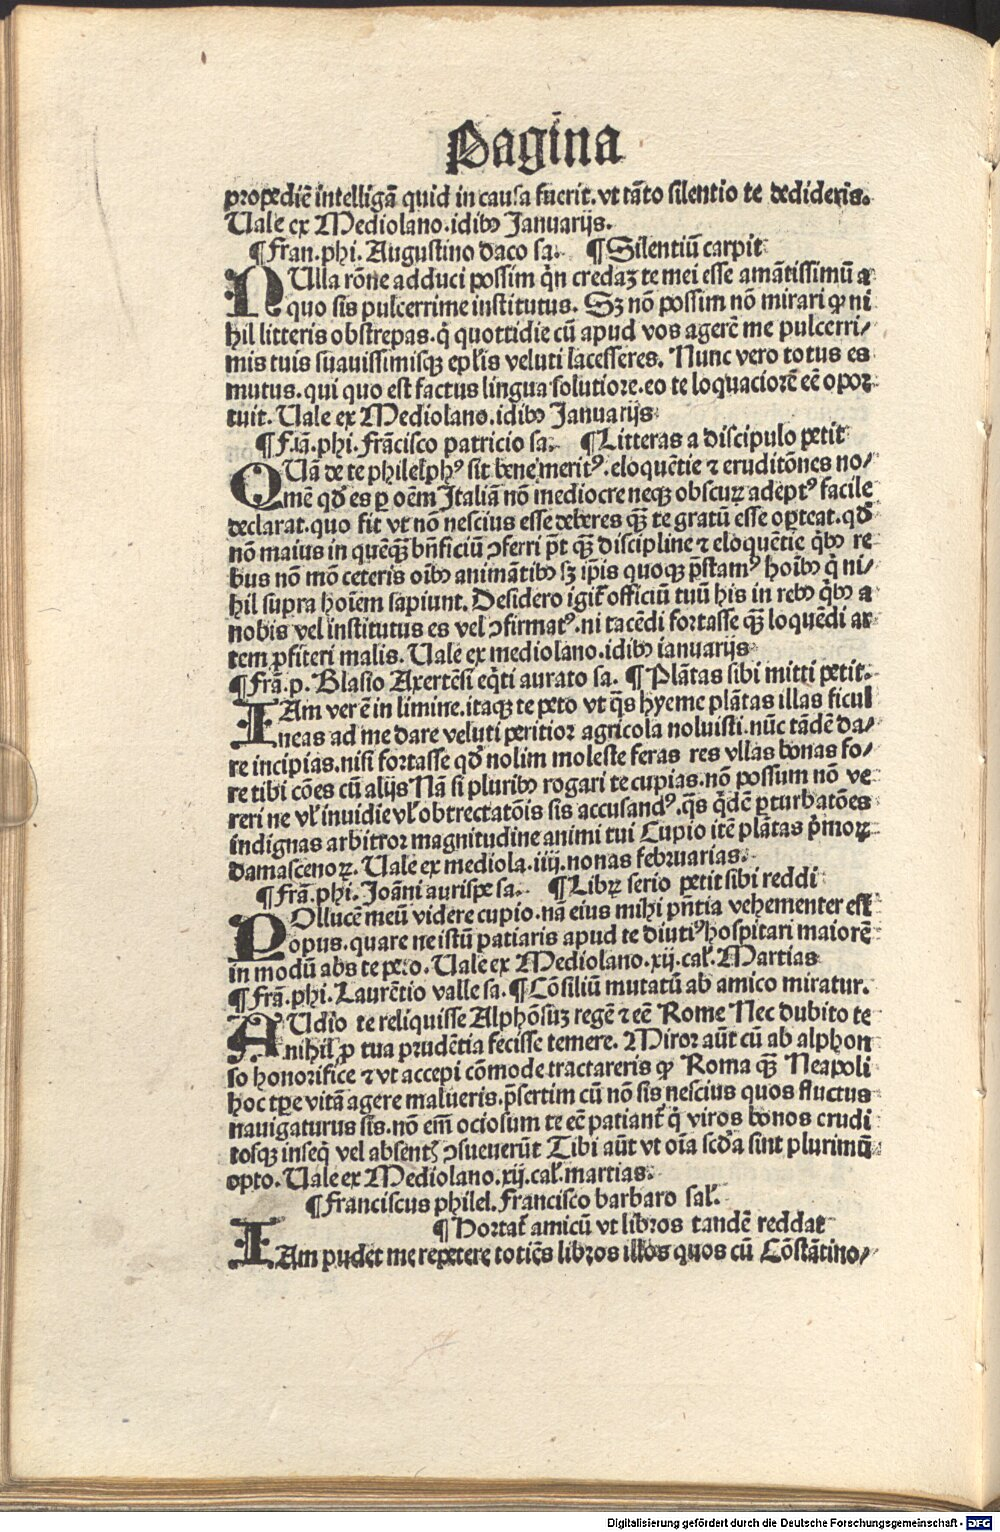 Pagīna
propediē intelligā quid in causa fuerit. vt tāto silentio te dedideris.
Uale ex Mediolano. idibꝰ Januarijs.
¶ Fran. phi. Augustino daco sa. ¶ Silentiū carpit
NUlla rōne adduci possim qͥn credaꝫ te mei esse amātissimū a
quo sis pulcerrime institutus. Sꝫ nō possim nō mirari ꝙ ni
hil litteris obstrepas. qͥ quottidie cū apud vos agerē me pulcerri/
mis tuis suauissimisqꝫ ep̄lis veluti lacesseres. Nunc vero totus es
mutus. qui quo est factus lingua solutiore. eo te loquaciorē eē opor
tuit. Uale ex Mediolano. idibꝰ Januarijs
¶ Frā. phi. Frācisco patricio sa. ¶ Litteras a discipulo petit
QUā de te philelphꝰ sit bene meritꝰ. eloquētie ⁊ eruditōnes no/
mē qđ es ꝑ oēm Italiā nō mediocre neqꝫ obscuꝝ adeptꝰ facile
declarat. quo fit vt nō nescius esse deberes qꝫ̄ te gratū esse oꝑteat. qđ
nō maius in quēqꝫ̄ bn̄ficiū ꝯferri pt̄ qꝫ̄ discipline ⁊ eloquētie qͥbꝰ re
bus nō mō ceteris oībꝰ animātibꝰ sꝫ ip̄is quoqꝫ p̄stamꝰ hoībꝰ qͥ ni/
hil supra hoīem sapiunt. Desidero igit̄ officiū tuū his in rebꝰ qͥbꝰ a
nobis vel institutus es vel ꝯfirmatꝰ. ni tacēdi fortasse qꝫ̄ loquēdi ar
tem ꝓfiteri malis. Uale ex mediolano. idibꝰ ianuarijs
¶ Frā. p. Blasio Axertēsi eqͥti aurato sa. ¶ Plātas sibi mitti petit.
IAm ver ē in limine. itaqꝫ te peto vt qͣs hyeme plātas illas ficul
neas ad me dare veluti peritior agricola noluisti. nūc tādē da/
re incipias. nisi fortasse qđ nolim moleste feras res vllas bonas fo/
re tibi cōes cū alijs Nā si pluribꝰ rogari te cupias. nō possum nō ve
reri ne vł inuidie vł obtrectatōis sis accusandꝰ. qͣs qͥdē ꝑturbatōes
indignas arbitror magnitudine animi tui Cupio itē plātas pͥmoꝝ
damascenoꝝ. Uale ex mediola. iiij. nonas februarias.
¶ Frā. phi. Joāni aurispe sa. ¶ Libꝝ serio petit sibi reddi
POllucē meū videre cupio. nā eius mihi pn̄tia vehementer est
opus. quare ne istū patiaris apud te diutiꝰ hospitari maiorē
in modū abs te peto. Uale ex Mediolano. xij. cał. Martias
¶ Frā. phi. Laurētio valle sa. ¶ Cōsiliū mutatū ab amico miratur.
AUdio te reliquisse Alphōsuꝫ regē ⁊ eē Rome Nec dubito te
nihil ꝓ tua prudētia fecisse temere. Miror aūt cū ab alphon
so honorifice ⁊ vt accepi cōmode tractareris ꝙ Roma qꝫ̄ Neapoli
hoc tꝑe vitā agere malueris. p̄sertim cū nō sis nescius quos fluctus
nauigaturus sis. nō em̄ ociosum te eē patiant̄ qͥ viros bonos crudi
tosqꝫ inseqͥ vel absentes ꝯsueuerūt Tibi aūt vt oīa scđa sint plurimū
opto. Uale ex Mediolano. xij. cał. martias.
¶ Franciscus philel. Francisco barbaro sał.
¶ Hortat̄ amicū vt libros tandē reddat
IAm pudet me repetere totiēs libros illos quos cū Cōstātino/
Digitalisierung gefördert durch die Deutsche Forschungsgemeinschaft - DFG